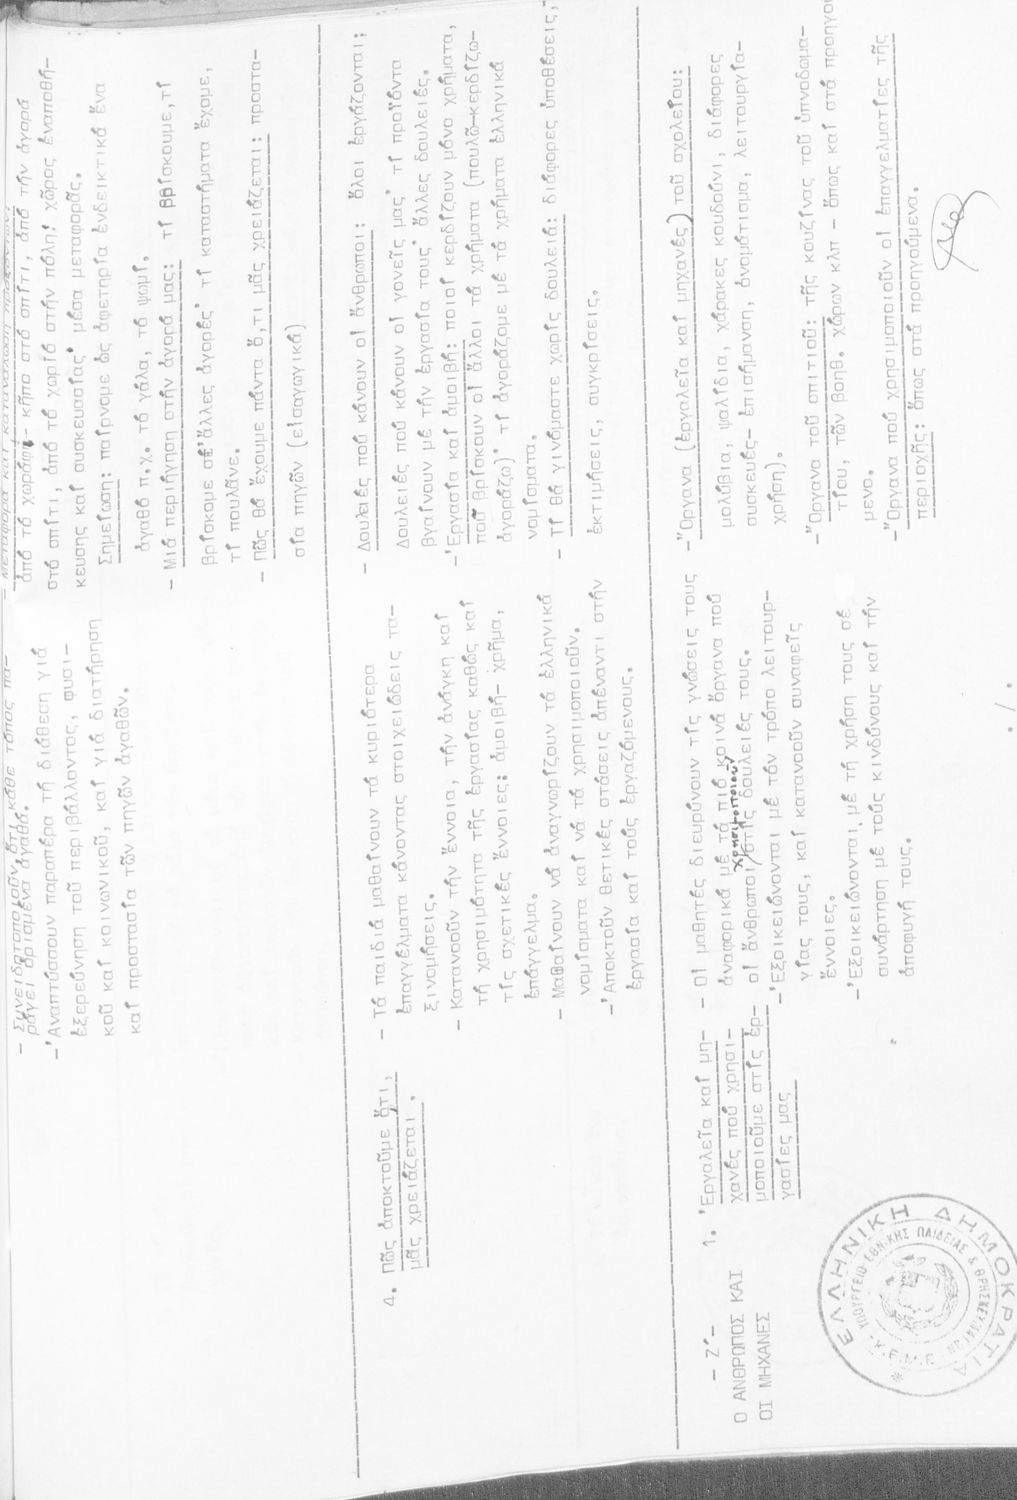 - Συνειδητοποιοῦν ὅτι κάθε τόπος πα-
ράγει ὁρισμένα ἀγαθά.
-'Αναπτύσσουν παραπέρα τή διάθεση γιά
ἐξερεύνηση τοῦ περιβάλλοντος, φυσι-
κοῦ καί κοινωνικοῦ, καί γιά διατήρηση
καί προστασία τῶν πηγῶν ἀγαθῶν.
- Μεταφορά καί κατανάλωση
ἀπό τό χωράφι- κῆπο στό σπίτι, ἀπό τήν ἀγορά
στό σπίτι, ἀπό τό χωριό στήν πόλη, χῶρος ἐναποθή-
κευσης καί συσκευασίας· μέσα μεταφορᾶς.
Σημείωση: παίρνομε ὡς ἀφετηρία ἐνδεικτικά ἕνα
ἀγαθό π.χ. τό γάλα, τό ψωμί.
- Μιά περιήγηση στήν ἀγορά μας: τί βρίσκουμε,τί
βρίσκομε σέ'ἄλλες ἀγορές· τί καταστήματα ἔχομε,
τί πουλᾶνε.
- Πῶς θά ἔχουμε πάντα ὅ,τι μᾶς χρειάζεται: προστα-
σία πηγῶν (εἰσαγωγικά)
4. Πῶς ἀποκτοῦμε ὅτι,
μᾶς χρειάζεται .
- Τά παιδιά μαθαίνουν τά κυριότερα
ἐπαγγέλματα κάνοντας στοιχειώδεις τα-
ξινομήσεις.
- Κατανοοῦν τήν ἔννοια, τήν ἀνάγκη καί
τή χρησιμότητα τῆς ἐργασίας καθώς καί
τίς σχετικές ἔννοιες: ἀμοιβή- χρῆμα,
ἐπάγγελμα.
- Μαθαίνουν νά ἀναγνωρίζουν τά ἑλληνικά
νομίσματα καί νά τά χρησιμοποιοῦν.
-'Αποκτοῦν θετικές στάσεις ἀπέναντι στήν
ἐργασία καί τούς ἐργαζόμενους.
- Δουλειές πού κάνουν οἱ ἄνθρωποι: ὅλοι ἐργάζονται;
Δουλειές πού κάνουν οἱ γονεῖς μας· τί προϊόντα
βγαίνουν μέ τήν ἐργασία τους· ἄλλες δουλειές.
-'Εργασία καί ἀμοιβή: ποιοί κερδίζουν μόνο χρήματα,
ποῦ βρίσκουν οἱ ἄλλοι τά χρήματα (πουλῶ-κερδίζω-
ἀγοράζω)· τί ἀγοράζομε μέ τά χρήματα ἑλληνικά
νομίσματα.
- Τί θά γινόμαστε χωρίς δουλειά: διάφορες ὑποθέσεις,
ἐκτιμήσεις, συγκρίσεις.
- Ζ΄-
Ο ΑΝΘΡΩΠΟΣ ΚΑΙ
ΟΙ ΜΗΧΑΝΕΣ
1. 'Εργαλεῖα καί μη-
χανές πού χρησι-
μοποιοῦμε στίς ἐρ-
γασίες μας
- Οἱ μαθητές διευρύνουν τίς γνώσεις τους
ἀναφορικά μέ τά πιό κοινά ὄργανα πού
χρησιμοποιοῦν
οἱ ἄνθρωποι/στίς δουλειές τους.
-'Εξοικειώνονται μέ τόν τρόπο λειτουρ-
γίας τους, καί κατανοοῦν συναφεῖς
ἔννοιες.
-'Εξοικειώνονται μέ τή χρήση τους σέ
συνάρτηση μέ τούς κινδύνους καί τήν
ἀποφυγή τους.
-"Οργανα (ἐργαλεῖα καί μηχανές) τοῦ σχολείου:
μολύβια, ψαλίδια, χάρακες κουδούνι, διάφορες
συσκευές- ἐπισήμανση, ὀνομάτισμα, λειτουργία-
χρήση).
-"Οργανα τοῦ σπιτιοῦ: τῆς κουζίνας τοῦ ὑπνοδωμα-
τίου, τῶν βοηθ. χώρων κλπ - ὅπως καί στά προηγού
μενο.
-"Οργανα πού χρησιμοποιοῦν οἱ ἐπαγγελματίες τῆς
περιοχῆς: ὅπως στά προηγούμενα.
ΕΛΛΗΝΙΚΗ ΔΗΜΟΚΡΑΤΙΑ
ΥΠΟΥΡΓΕΙΟ ΕΘΝΙΚΗΣ ΠΑΙΔΕΙΑΣ & ΘΡΗΣΚΕΥΜΑΤΩΝ
Κ.Ε.Μ.Ε.